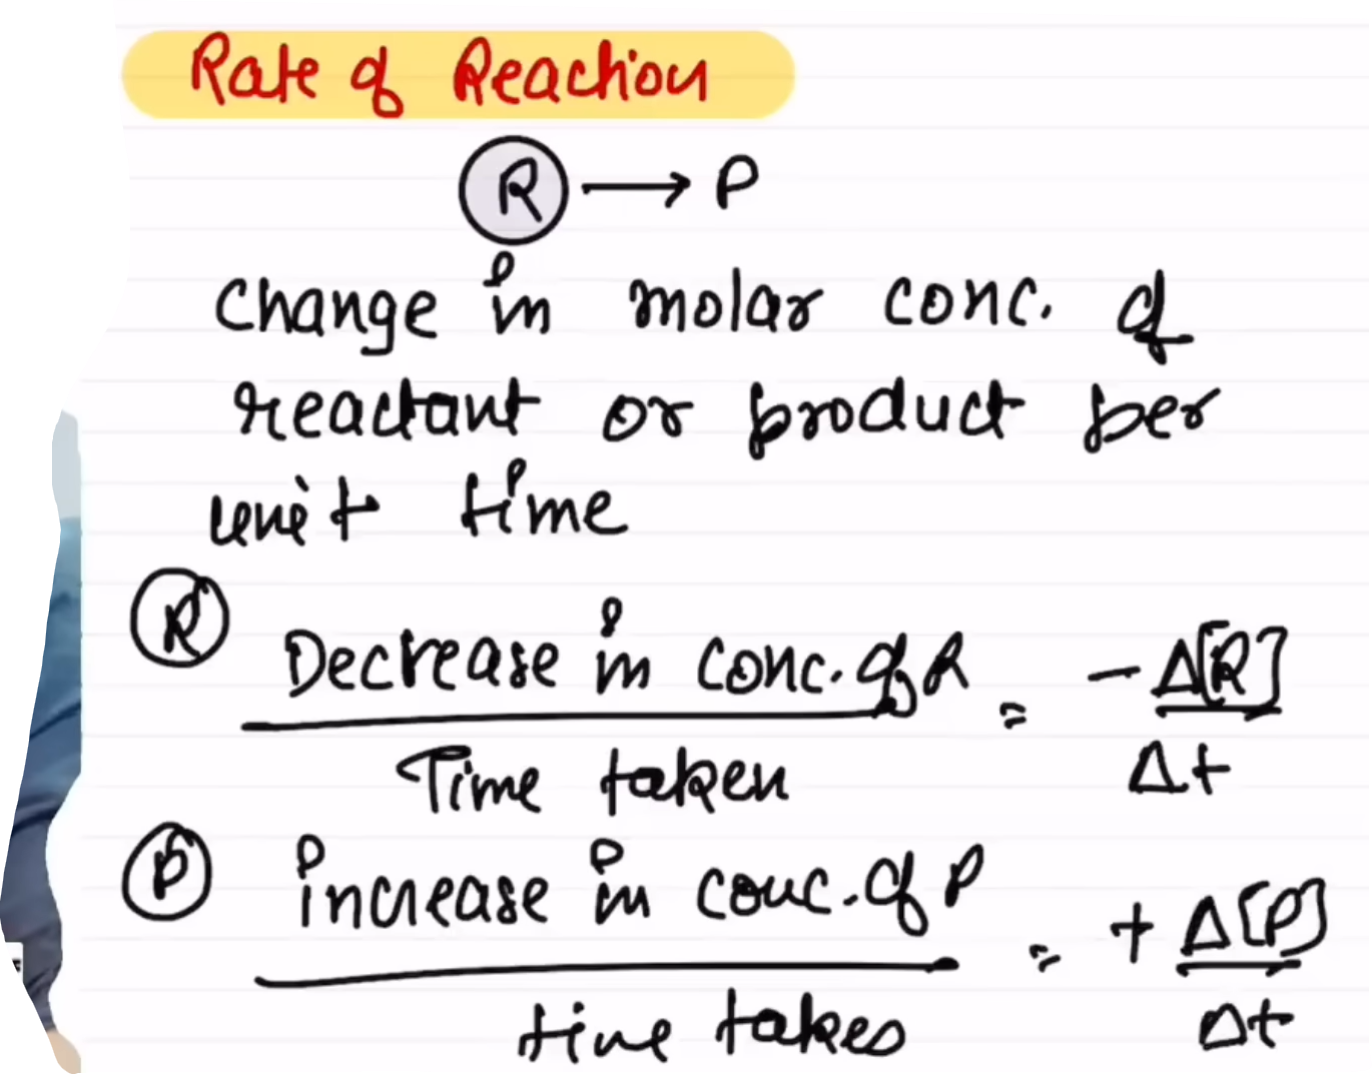 Rate of Reaction
R → P
Change in molar conc. of
reactant or product per
unit time
R
Decrease in conc. of R = - Δ[R]
Time taken Δt
P
increase in conc. of P = + Δ[P]
time takes Δt